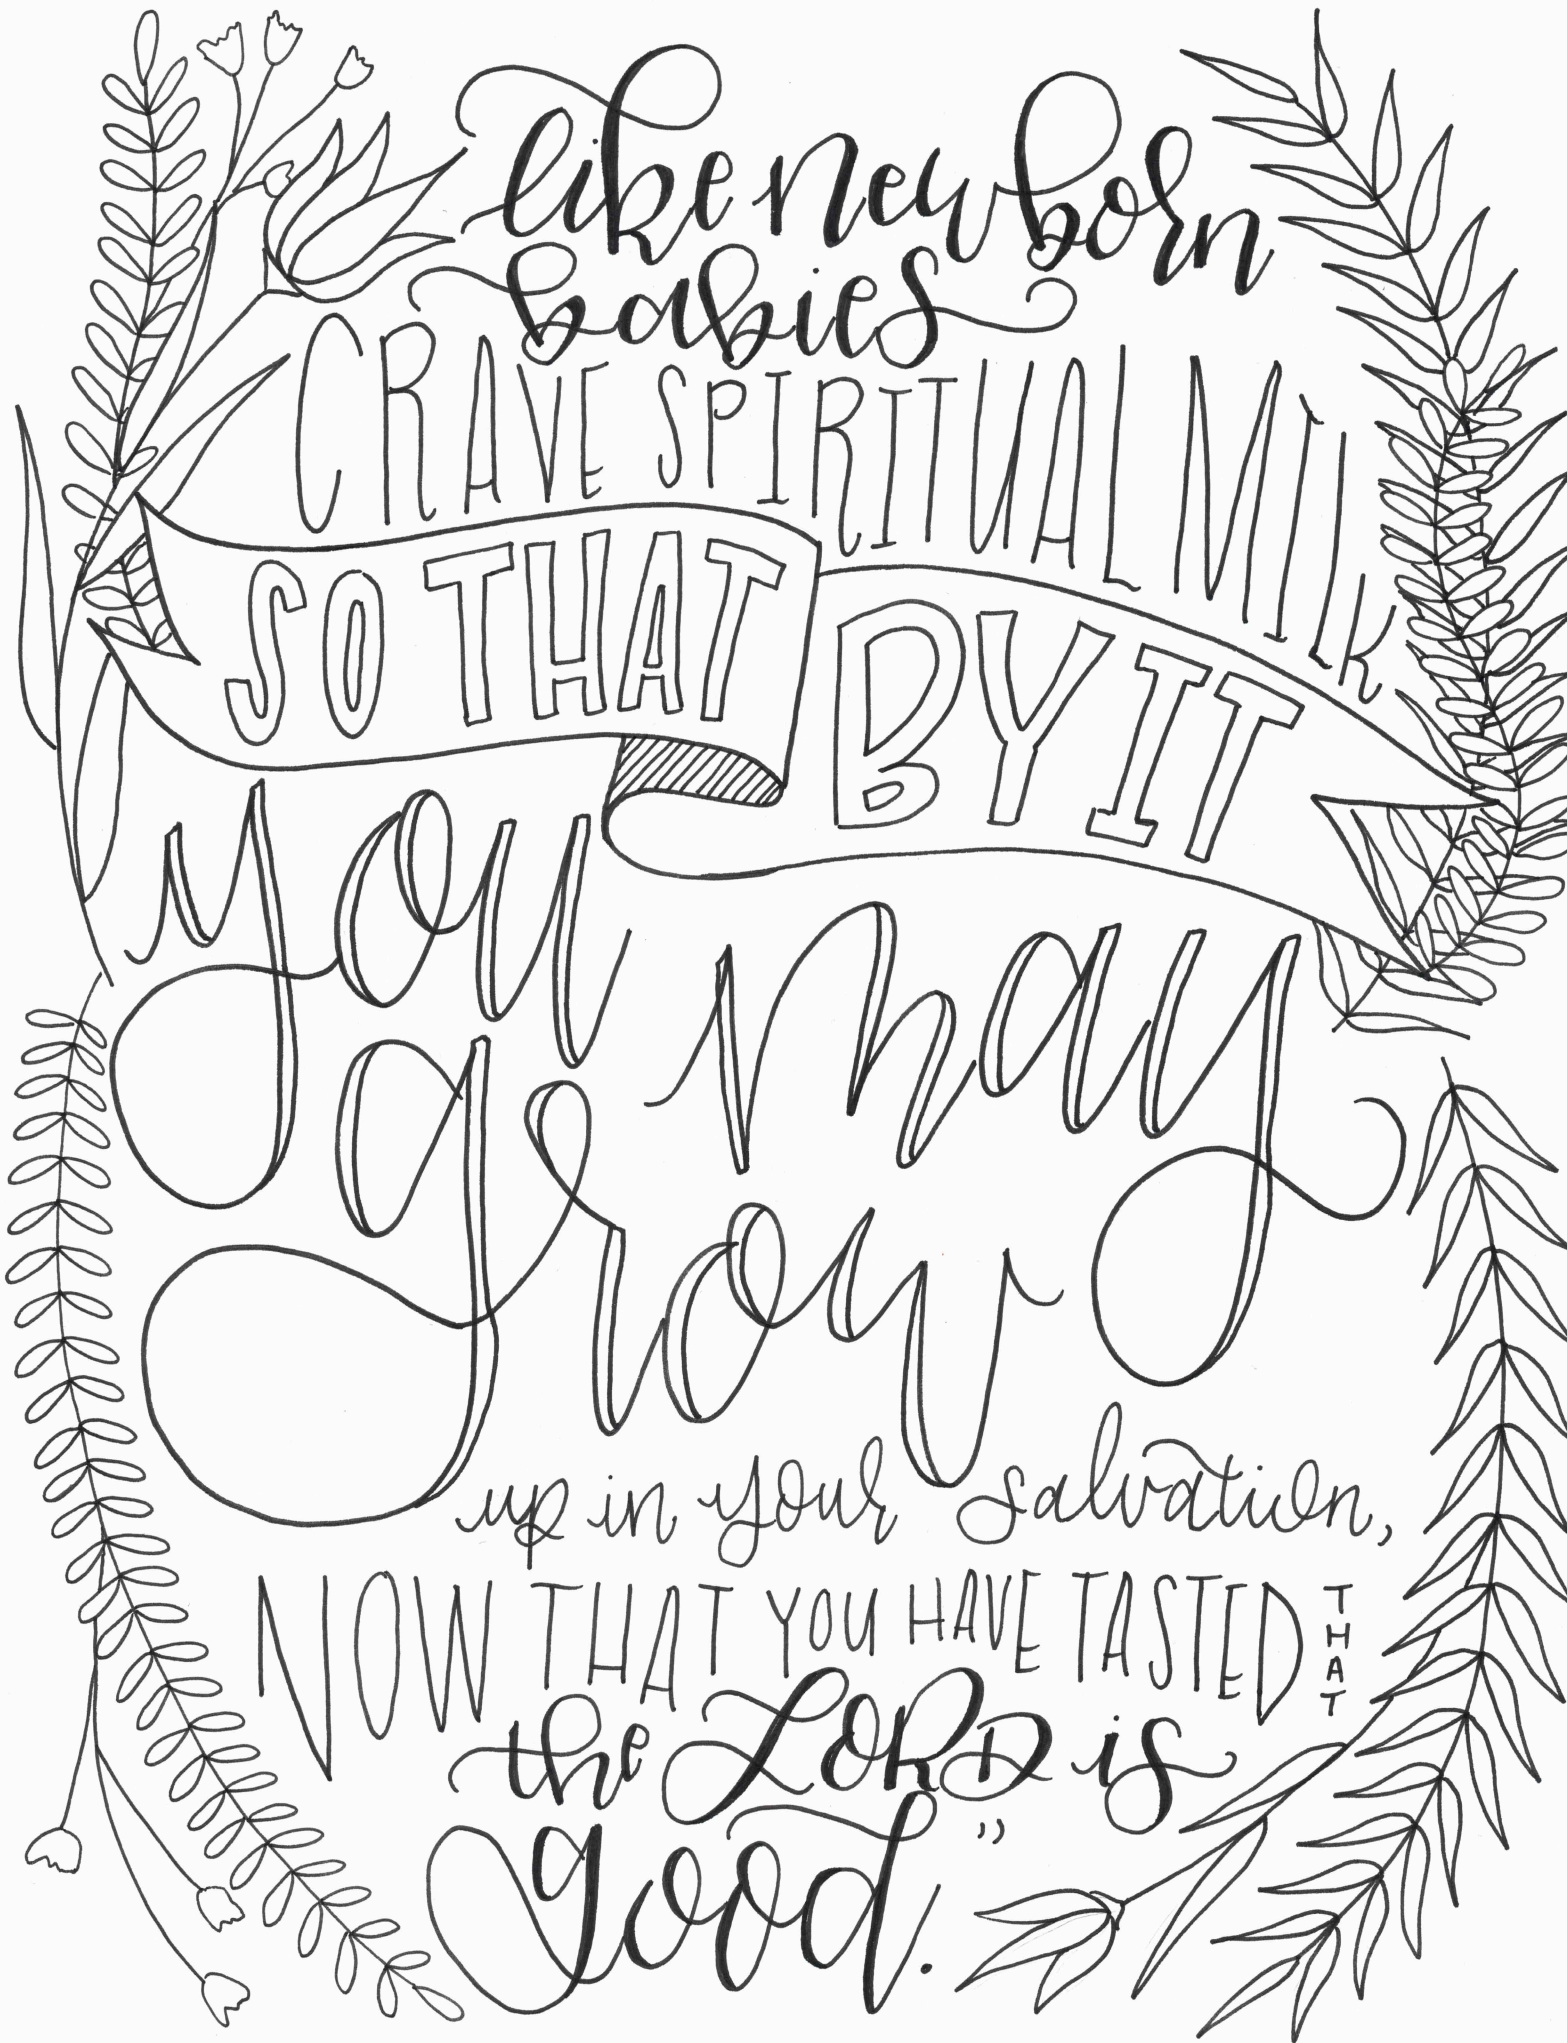 like newborn
babies
CRAVE SPIRITUAL MILK
SO THAT BY IT
you may
grow
up in your salvation,
NOW THAT YOU HAVE TASTED THAT
the LORD is
good."